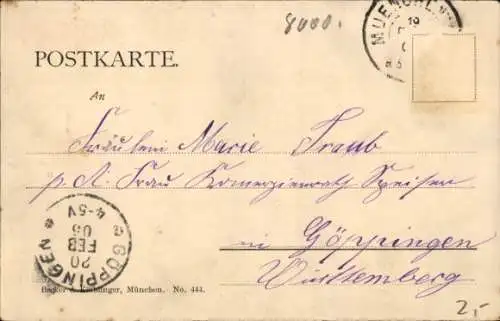 8000.
MUENCHEN
19
POSTKARTE.
An
Fräulein Marie Traub
p. A. Frau Komerzienrath Speiser
in Göppingen
Württemberg
GÖPPINGEN
20
FEB
05
4-5V
Becker & Kölblinger, München. No. 444.
2,-